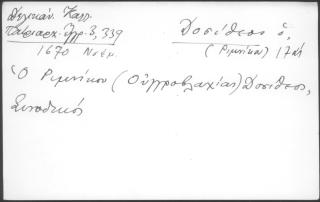 Δελικάν. Καλλ.
Πατριαρχ. Έγγρ. 3, 339
1670 Νοέμ.
Δοσίθεος ὁ,
(Ριμνίκου) 17 αἰ
Ὁ Ριμνίκου (Οὐγγροβλαχίας) Δοσίθεος,
Συνοδικός